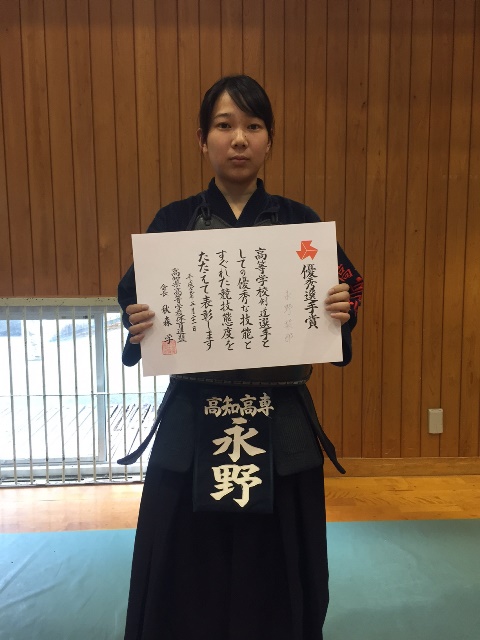 優秀選手賞
高等学校剣道選手と
しての優秀な技能と
すぐれた競技態度を
たたえて表彰します
高知県高等学校体育連盟
会長
高知高専
永野